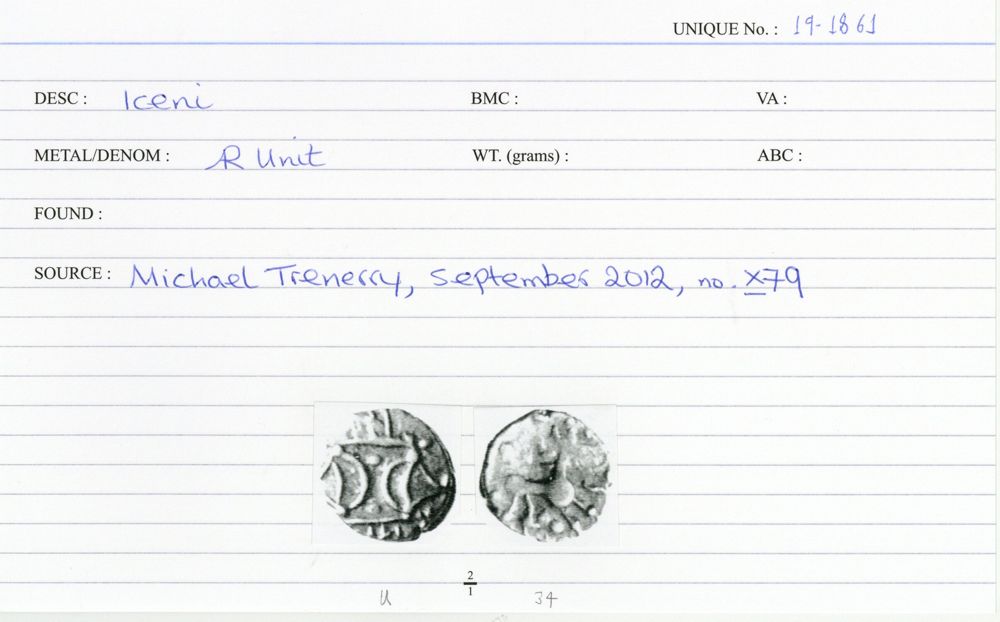 UNIQUE No. : 19-1861
DESC : Iceni BMC : VA :
METAL/DENOM : AR Unit WT. (grams) : ABC :
FOUND :
SOURCE : Michael Trenerry, September 2012, no. X79
2/1
U 34